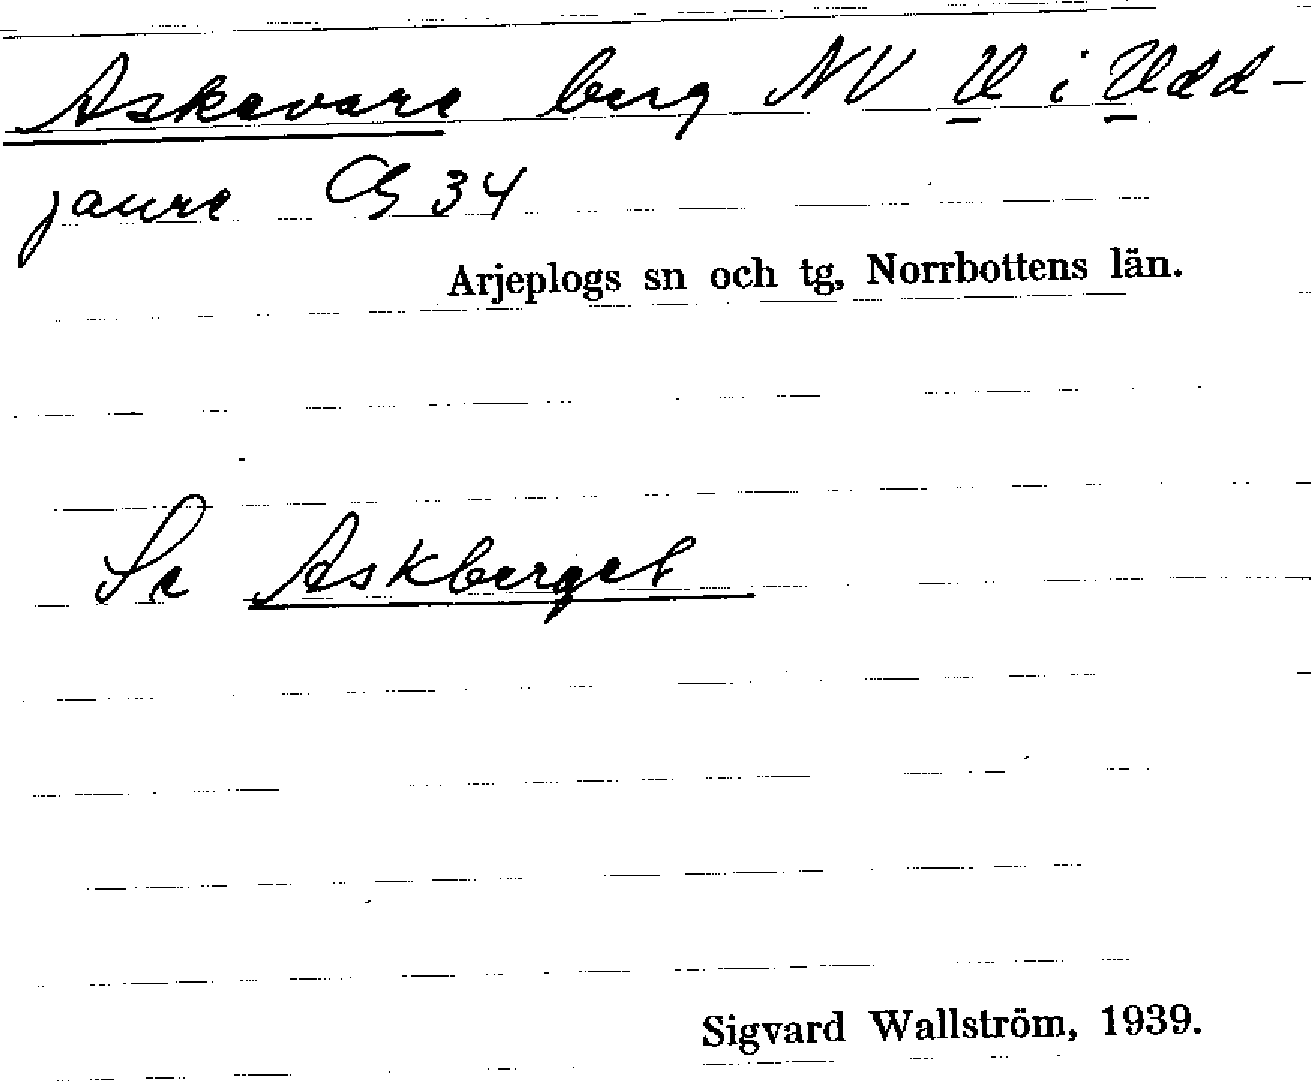 Askavare berg NV U i Udd-
jaure G 34
Arjeplogs sn och tg, Norrbottens län.
Se Askberget
Sigvard Wallström, 1939.